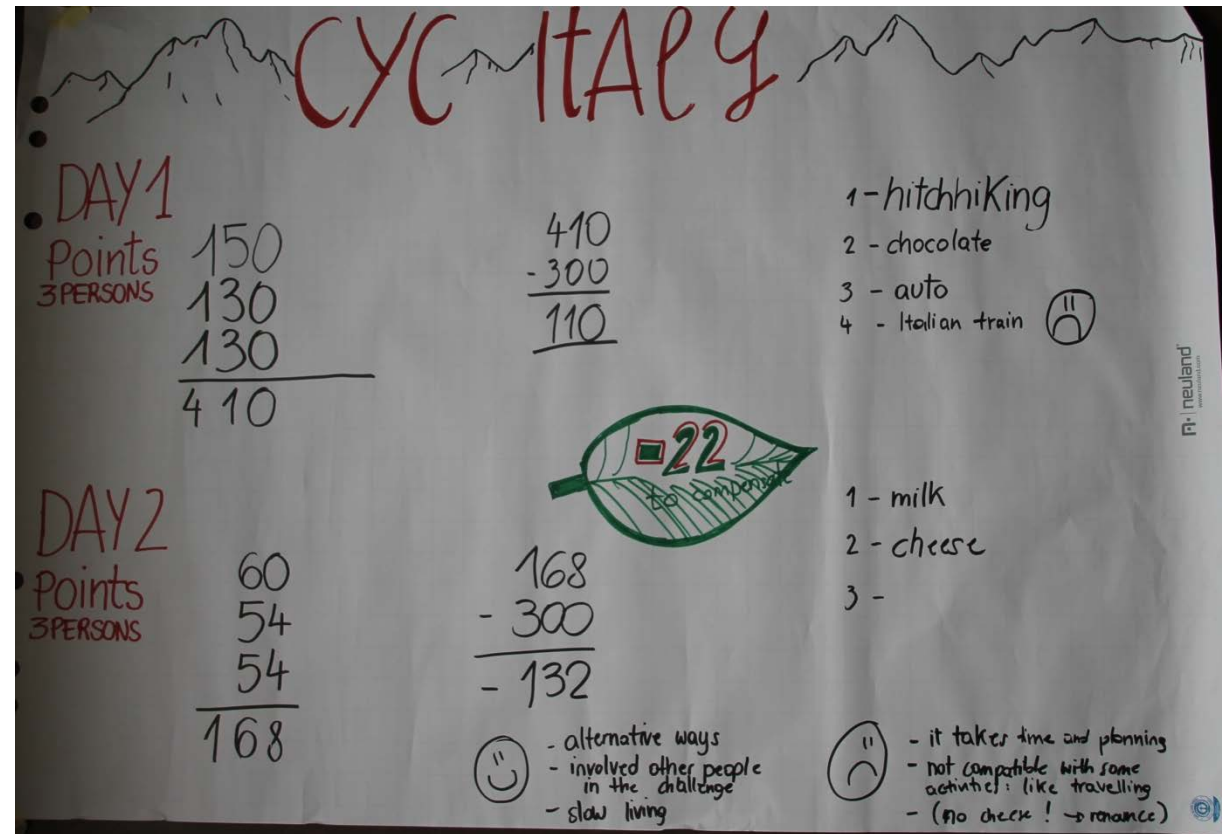 CYC ITALY
DAY 1
Points
3 PERSONS
150
130
130
410
410
-300
110
1 - hitchhiking
2 - chocolate
3 - auto
4 - Italian train
neuland
-22
to compensate
DAY 2
Points
3 PERSONS
60
54
54
168
168
- 300
- 132
1 - milk
2 - cheese
3 -
- alternative ways
- involved other people
in the challenge
- slow living
- it takes time and planning
- not compatible with some
activities: like travelling
- (no cheese! →